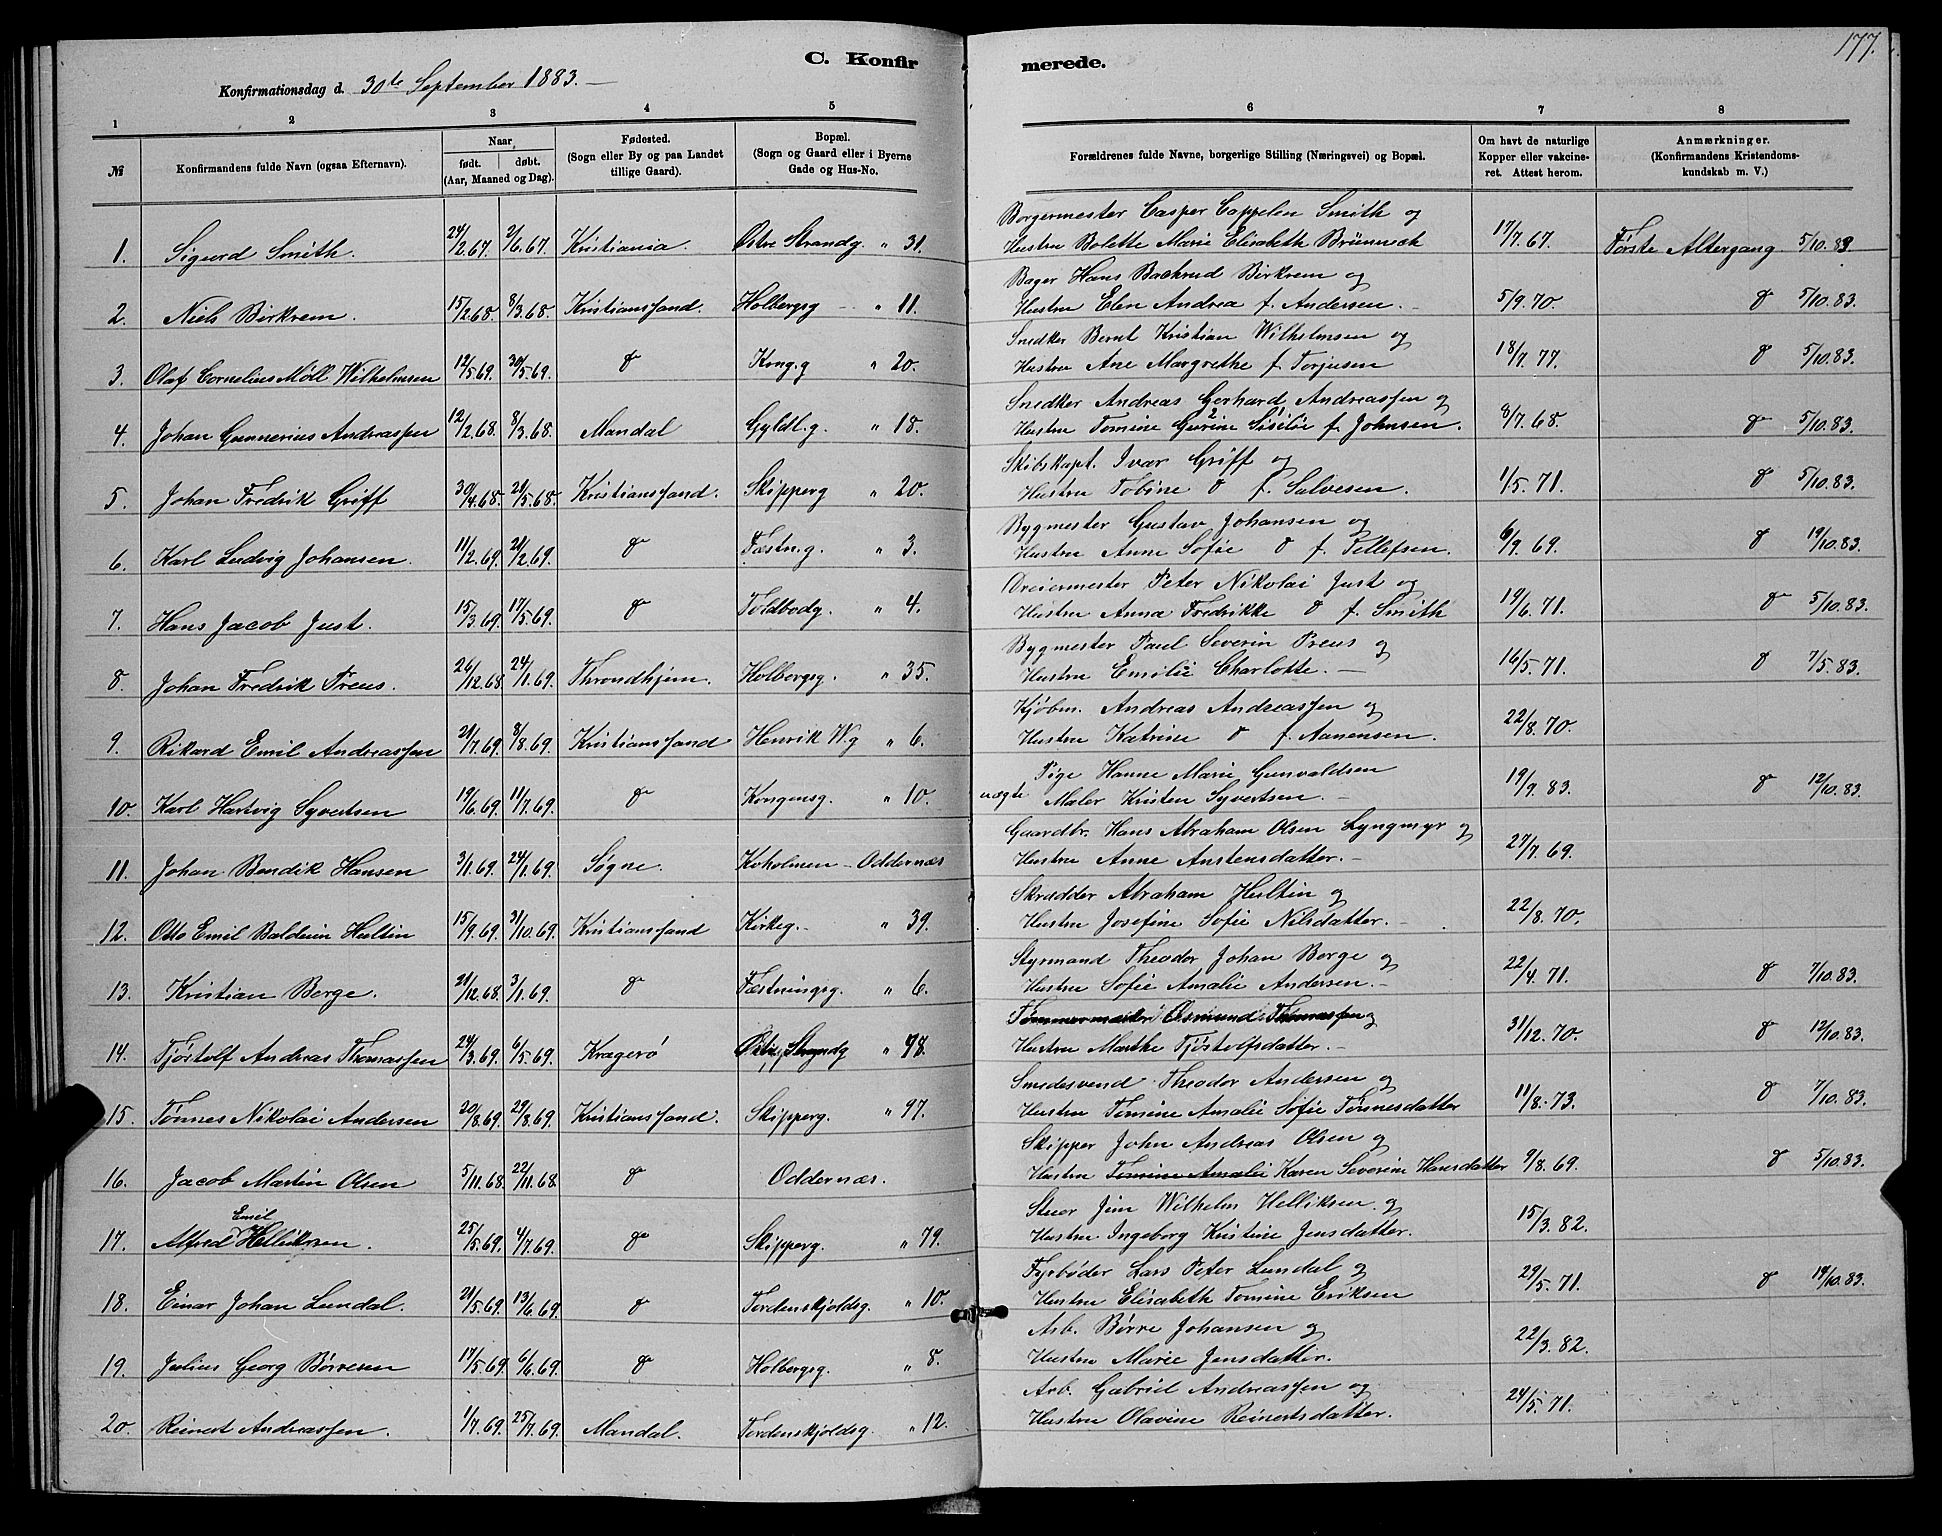 177.
C. Konfirmerede.
Konfirmationsdag d. 30te September 1883.
1 2 3 4 5 6 7 8
№ Konfirmandens fulde Navn (ogsaa Efternavn). Naar født. døbt. (Aar, Maaned og Dag). Fødested. (Sogn eller By og paa Landet tillige Gaard). Bopæl. (Sogn og Gaard eller i Byerne Gade og Hus-No. Forældrenes fulde Navne, borgerlige Stilling (Næringsvei) og Bopæl. Om havt de naturlige Kopper eller vakcineret. Attest herom. Anmærkninger. (Konfirmandens Kristendomskundskab m. V.)
Borgermester Casper Cappelen Smith og
1. Sigurd Smith. 24/2.67. 2/6.67. Kristiania. Østre Strandg. " 31. Hustru Bolette Marie Elisabeth Brünnech 17/7.67. Første Altergang 5/10.83.
Bager Hans Backrud Birkrem og
2. Niels Birkrem. 15/2.68. 8/3.68. Kristianssand. Holbergsg " 11. Hustru Elen Andrea f. Andersen. 5/9.70. d 5/10.83.
Snedker Bernt Kristian Wilhelmsen og
3. Olaf Cornelius Möll Wilhelmsen 12/5.69. 30/5.69. d Kong.g " 20. Hustru Ane Margrethe f. Torjusen 18/7.77. d 5/10.83.
Snedker Andreas Gerhard Andreassen og
4. Johan Gunnerius Andreassen 12/2.68. 8/3.68. Mandal Gyldl.g. " 18. Hustru Tomine Gurine Siselie f. Johnsen. 8/7.68. d 5/10.83.
Skibskapt. Ivar Griff og
5. Johan Fredrik Griff 30/4.68. 21/5.68. Kristianssand. Skipperg " 20. Hustru Tobine d f. Salvesen. 1/5.71. d 5/10.83.
Bygmester Gustav Johansen og
6. Karl Ludvig Johansen. 11/2.69. 21/2.69. d Fæstn.g. " 3. Hustru Anne Sofie d f. Tellefsen. 6/9.69. d 19/10.83.
Dreiermester Peter Nikolai Just og
7. Hans Jacob Just. 15/3.69. 17/5.69. d Toldbodg. " 4. Hustru Anna Fredrikke d f. Smith 19/6.71. d 5/10.83.
Bygmester Paul Severin Preus og
8. Johan Fredrik Preus. 26/12.68 24/1.69. Throndhjem. Holbergsg. " 35. Hustru Emilie Charlotte. 16/5.71. d 7/5.83.
Kjøbm. Andreas Andreassen og
9. Rikard Emil Andreassen 21/7.69. 8/8.69. Kristianssand Henrik W.g " 6. Hustru Katrine d f. Aanensen. 22/8.70.
Pige Hanne Marie Gunvaldsen
10. Karl Hartvig Syvertsen 19/6.69. 11/7.69. d Kongensg. " 10. uægte Maler Kristen Syvertsen. 19/9.83. d 12/10.83.
Gaardbr. Hans Abraham Olsen Lyngmyr og
11. Johan Bendik Hansen 3/1.69. 24/1.69. Søgne. Koholmen - Oddernæs Hustru Anne Anstensdatter. 27/7.69.
Skrædder Abraham Hultin og
12. Otto Emil Balduin Hultin 15/9.69. 31/10.69. Kristianssand Kirkeg. " 39. Hustru Josefine Sofie Nilsdatter. 22/8.70.
Styrmand Theodor Johan Berge og
13. Kristian Berge. 21/12.68. 3/1.69. d Fæstningsg. " 6. Hustru Sofie Amalie Andersen. 22/4.71. d 7/10.83.
Tømmermand Osmund Thomassen og
14. Tjöstolf Andreas Thomassen 24/3.69. 6/5.69. Kragerø Østre Strandg " 48. Hustru Marthe Tjöstolfsdatter. 31/12.70. d 12/10.83.
Smedesvend Theodor Andersen og
15. Tønnes Nikolai Andersen 20/8.69. 29/8.69. Kristianssand. Skipperg. " 97. Hustru Tomine Amalie Sofie Tønnesdatter 11/8.73. d 7/10.83.
Skipper John Andreas Olsen og
16. Jacob Martin Olsen 5/11.68. 22/11.68. d Oddernæs. Hustru Tomine Amalie Karen Severine Hansdatter 9/8.69. d 5/10.83.
Stuer Jens Wilhelm Helliksen og
17. Alfred Emil Helliksen. 25/5.69. 4/7.69. d Skipperg. " 79. Hustru Ingeborg Kristine Jensdatter. 15/3.82.
Fyrbøder Lars Peter Lundal og
18. Einar Johan Lundal. 21/5.69. 13/6.69. d Tordenskjoldsg. " 10. Hustru Elisabeth Tomine Eriksen 29/5.71. d 14/10.83.
Arb. Børre Johansen og
19. Julius Georg Börresen 17/5.69. 6/6.69. d Holbergsg. " 8. Hustru Marie Jensdatter. 22/3.82.
Arb. Gabriel Andreassen og
20. Reinert Andreassen. 1/7.69. 25/7.69. Mandal. Tordenskjoldsg. " 12. Hustru Olavine Reinertsdatter. 24/5.71.